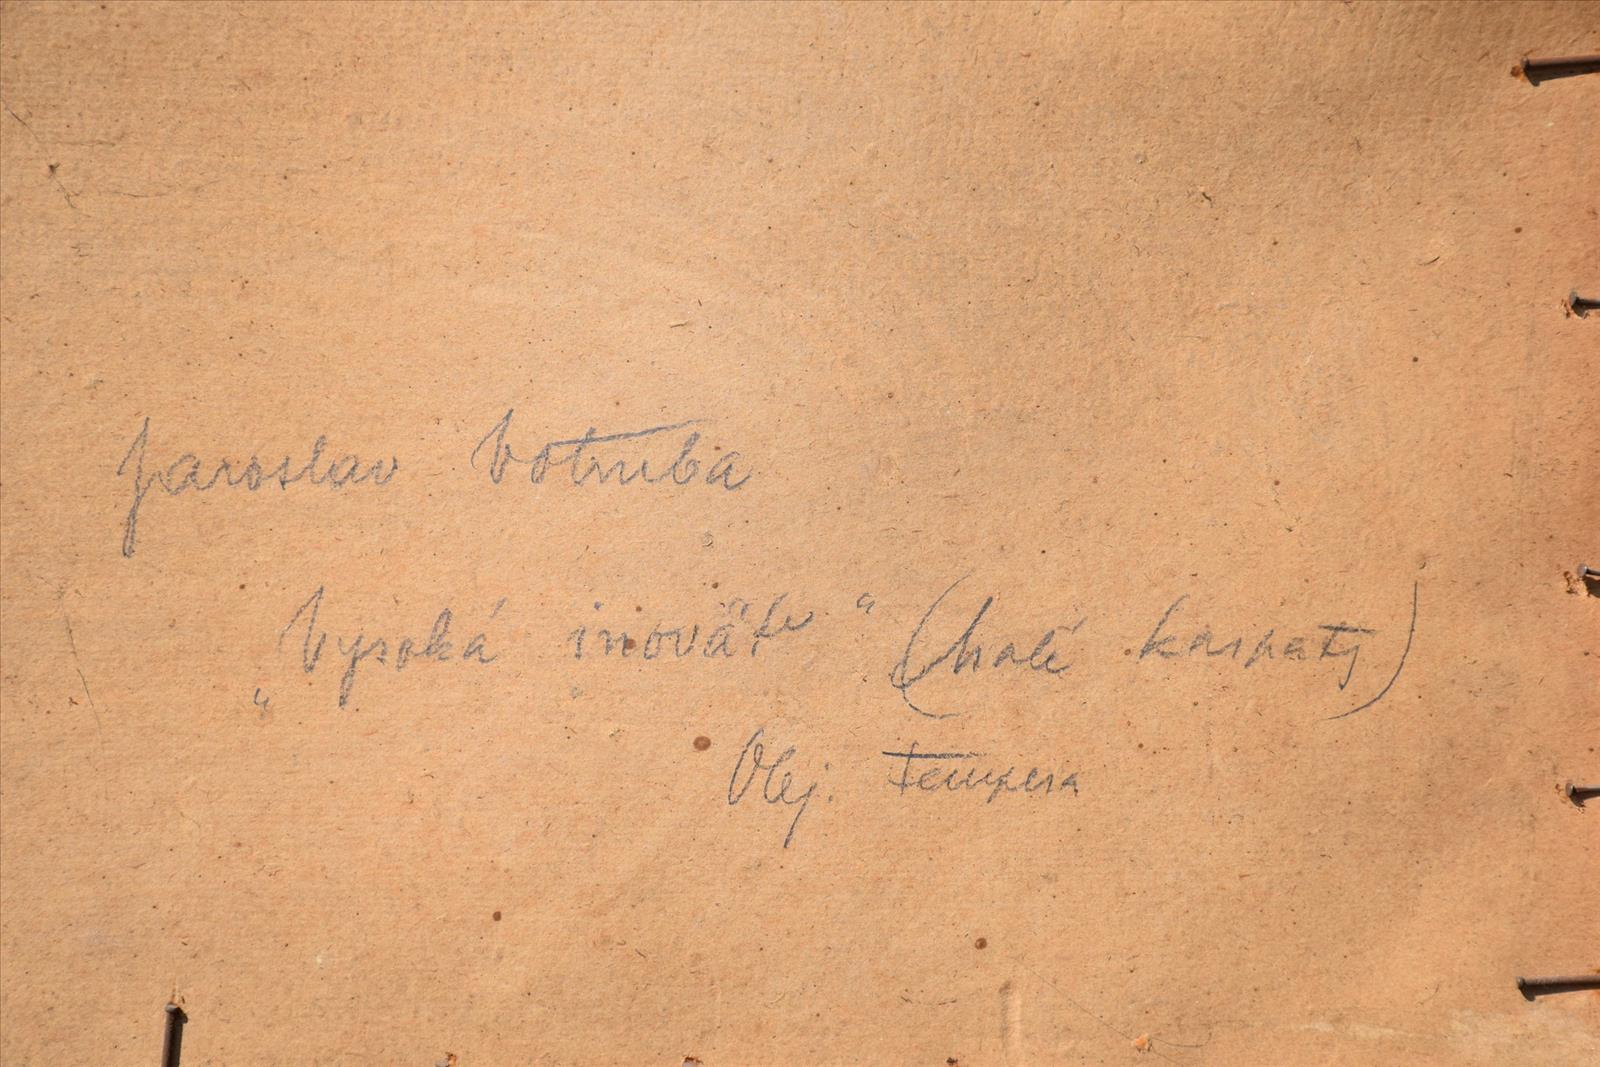 Jaroslav Votruba
„Vysoká inovätu“ (halé karpaty)
Olej. tempera